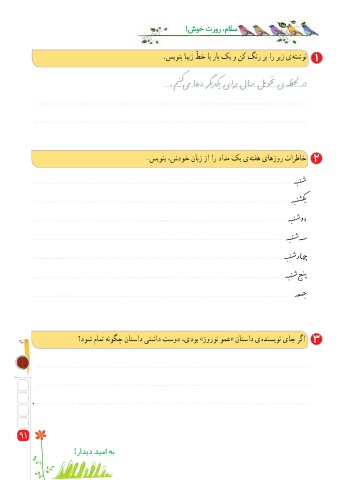 سلام، روزت خوش!
۱ نوشته‌ی زیر را پر رنگ کن و یک بار با خطّ زیبا بنویس.
در لحظه‌ی تحویل سال برای یکدیگر دعا می‌کنیم.
۲ خاطرات روزهای هفته‌ی یک مداد را از زبان خودش، بنویس.
شنبه
یکشنبه
دوشنبه
سه شنبه
چهارشنبه
پنج شنبه
جمعه
۳ اگر جای نویسنده‌ی داستان «عمو نوروز» بودی، دوست داشتی داستان چگونه تمام شود؟
۹۱
به امید دیدار!